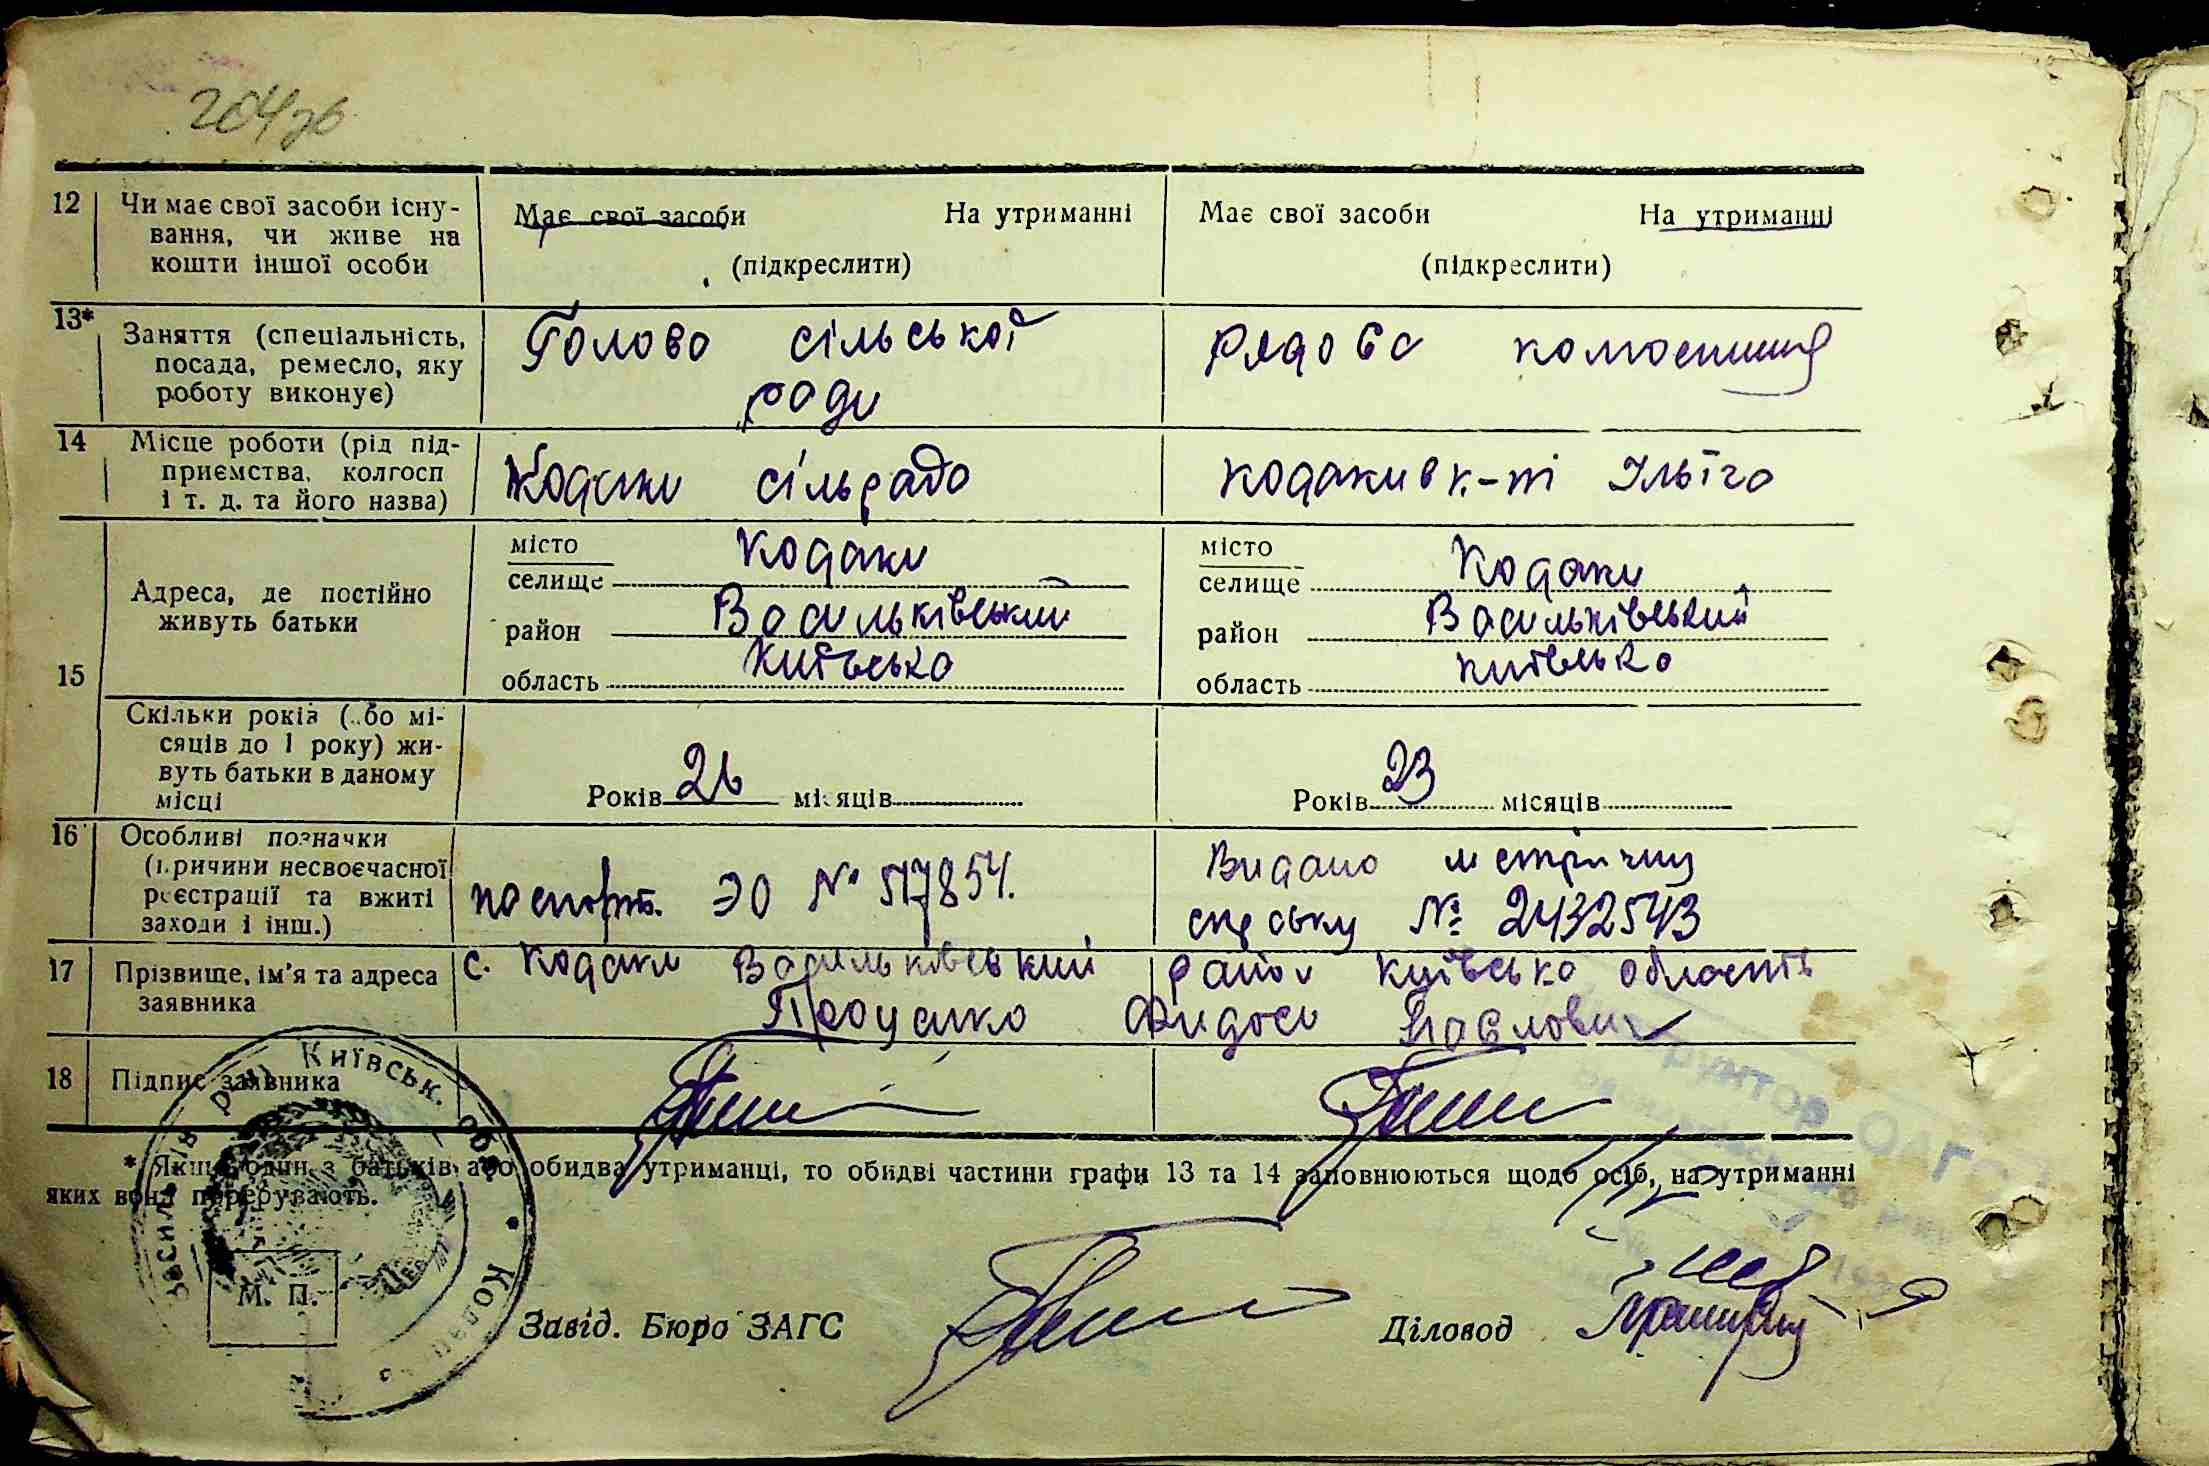 204зв
12 Чи має свої засоби існу-
вання, чи живе на
кошти іншої особи
Має свої засоби На утриманні
(підкреслити)
Має свої засоби На утриманні
(підкреслити)
13* Заняття (спеціальність,
посада, ремесло, яку
роботу виконує)
Голова сільської
ради
Рядова колгоспниця
14 Місце роботи (рід під-
приємства, колгосп
і т. д. та його назва)
Кодаки сільрада
Кодаки Ілліча
15 Адреса, де постійно
живуть батьки
місто
селище Кодаки
район Васильківський
область Київська
місто
селище Кодаки
район Васильківський
область Київська
Скільки років (або мі-
сяців до 1 року) жи-
вуть батьки в даному
місці
Років 26 місяців
Років 23 місяців
16 Особливі позначки
(причини несвоєчасної
реєстрації та вжиті
заходи і інш.)
паспорт. ЭО № 517854.
Видано метричну
справку № 2432543
17 Прізвище, ім'я та адреса
заявника
с. Кодаки Васильківський район Київська область
Проценко Федос Павлович
18 Підпис заявника
* Якщо один з батьків або обидва утриманці, то обидві частини графи 13 та 14 заповнюються щодо осіб, на утриманні
яких вони перебувають.
М. П.
Завід. Бюро ЗАГС
Діловод